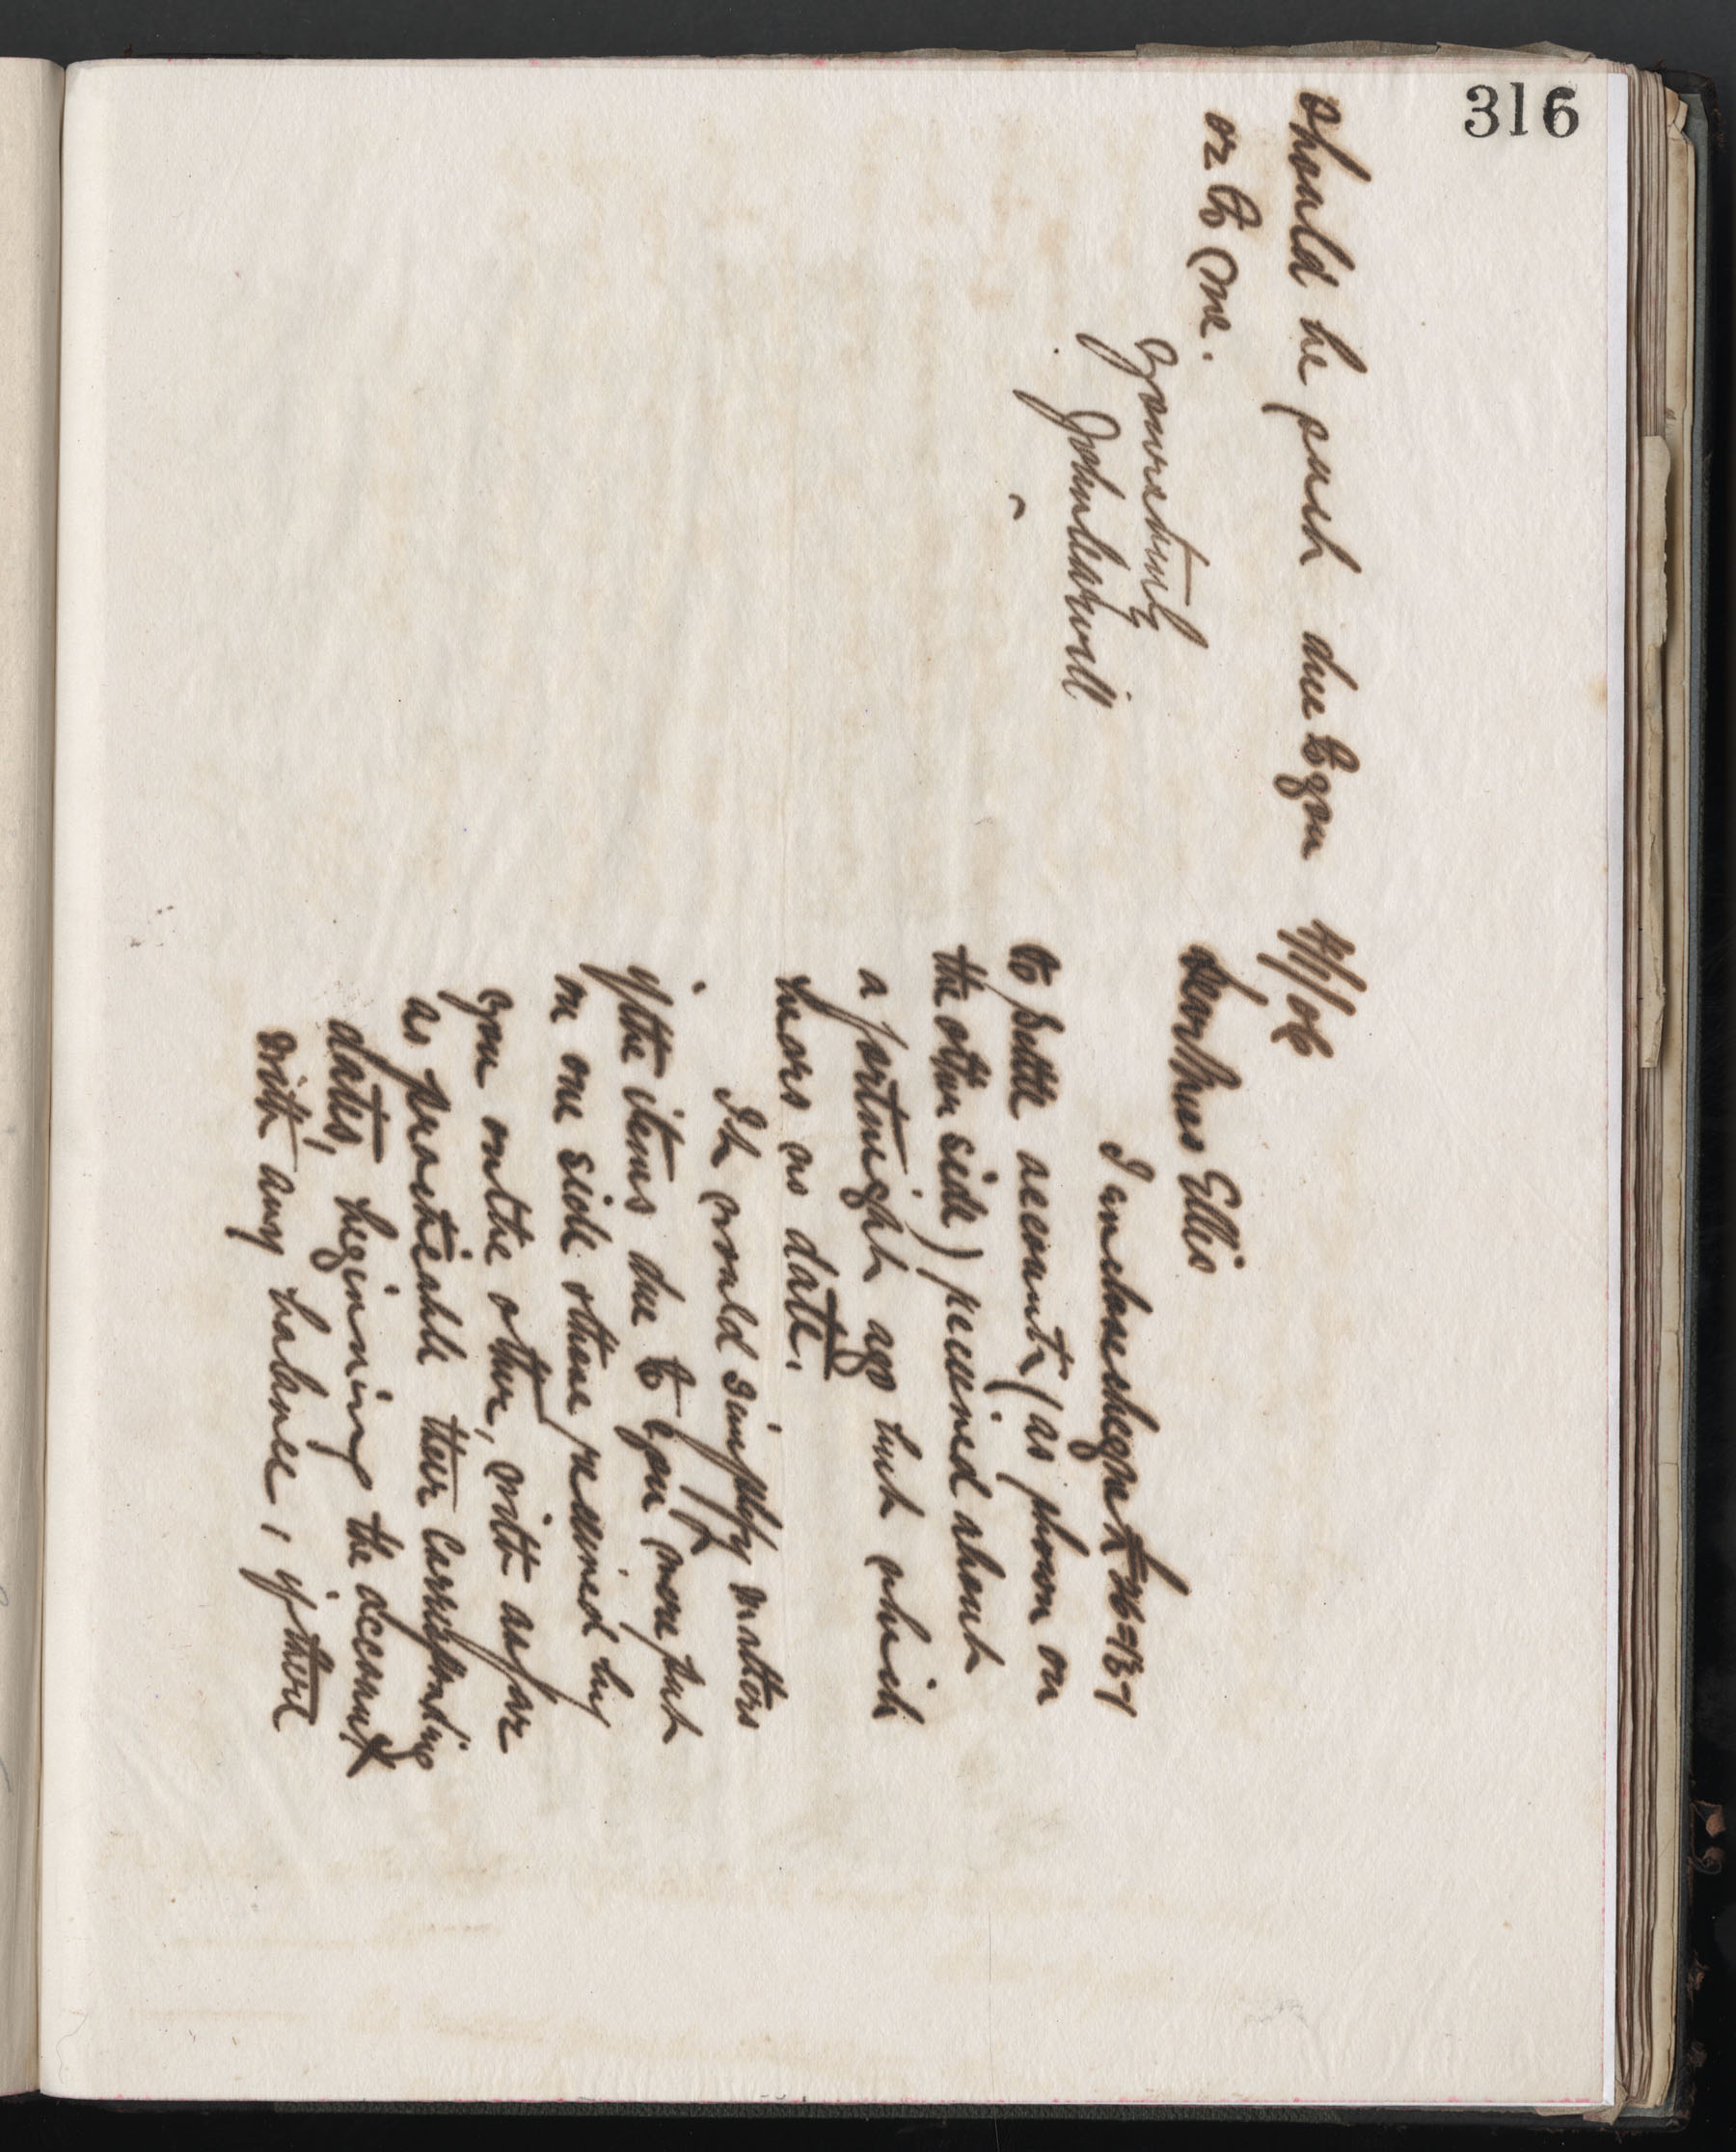 316
Dear Miss Ellis
I enclose cheque £
to settle account (as shown on
the other side) received about
a fortnight ago but which
bears no date.
It would simplify matters
if the items due to you were put
on one side those received by
you on the other, with as far
as practicable their corresponding
dates, beginning the account
with any balance, if there
should be such due to you
or to me.
Yours truly
John